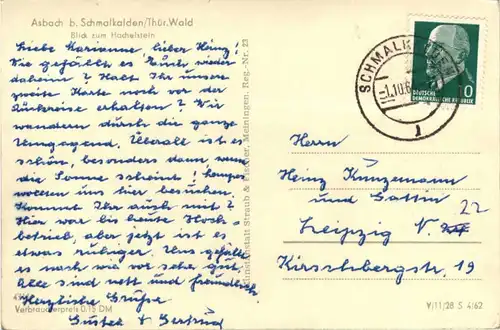 Asbach b. Schmalkalden/Thür. Wald
Blick zum Hachelstein
Liebe Marianne lieber Heinz!
Wie gefällt es Euch wieder
daheim? Habt Ihr unsere
zweite Karte noch vor der
Rückreise erhalten? Wir
wandern durch die ganze
Umgegend. Überall ist es
schön, besonders dann, wenn
die Sonne scheint!
wollten uns hier besuchen.
Kommt Ihr auch mit?
Hier war bis heute Hoch-
betrieb, aber jetzt ist es
etwas ruhiger. Uns gefällt
es nach wie vor sehr gut.
Alle sind nett und freundlich
Herzliche Grüße
Gustel & Gertrud
Verbraucherpreis 0.15 DM
Kunstanstalt Straub & Fischer, Meiningen, Reg.-Nr. 23
SCHMALKALDEN
-1.10.6
1
10
DEUTSCHE
DEMOKRATISCHE REPUBLIK
Herrn
Heinz Kunzemann
und Gattin
Leipzig N. 22
Kirschbergstr. 19
V/11/28 S 4/62